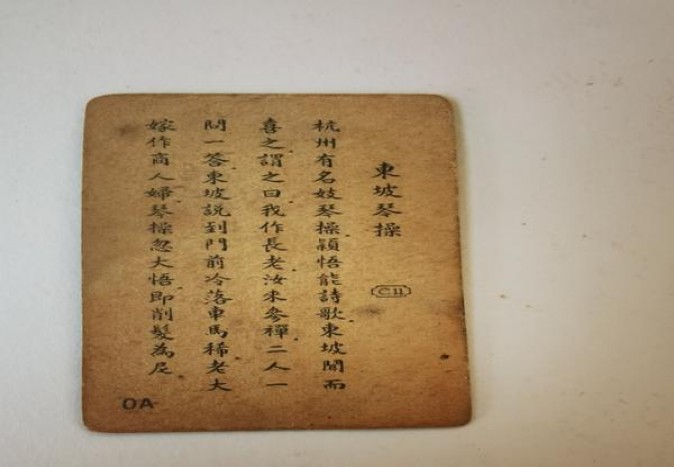 東坡琴操
C11
杭州有名妓琴操穎悟能詩歌東坡聞而
喜之謂之曰我作長老汝未參禪二人一
問一答東坡説到門前冷落車馬稀老大
嫁作商人婦琴操忽大悟即削髮為尼
OA